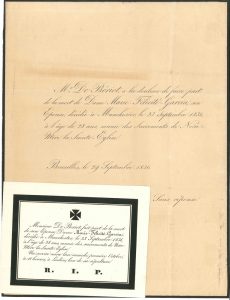 Mr De Bériot, a la douleur de faire part
de la mort de Dame Marie Félicité Garcia, son
Epouse, décédée à Manchester, le 23 Septembre 1836,
à l'âge de 28 ans munie des Sacrements de Notre
Mère la Sainte Eglise.
Bruxelles, le 29 Septembre 1836.
Sans réponse.
Monsieur De Bériot fait part de la mort
de son Epouse Dame Marie Félicité Garcia,
décédée à Manchester, le 23 Septembre 1836
à l'âge de 28 ans munie des sacrements de Notre
Mère la Sainte Eglise.
Octobre,
à heures à Laeken lieu de sa sépulture.
R. I. P.